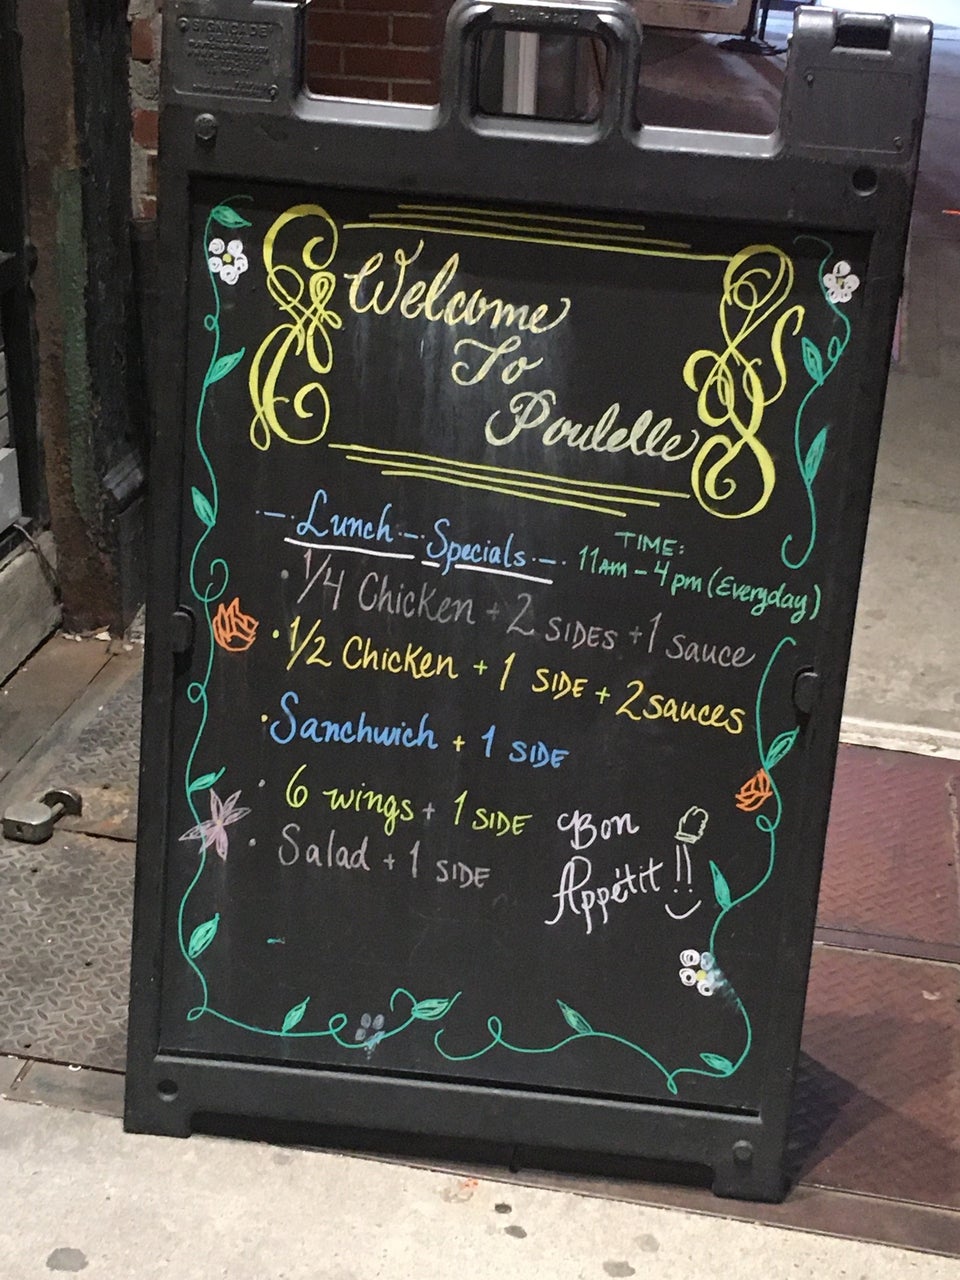 SIGNICADE
Welcome
To
Poulelle
Lunch Specials
TIME:
11AM - 4pm (Everyday)
• 1/4 Chicken + 2 SIDES + 1 sauce
• 1/2 Chicken + 1 SIDE + 2 sauces
• Sanchwich + 1 SIDE
• 6 wings + 1 SIDE
• Salad + 1 SIDE
Bon
Appétit !!